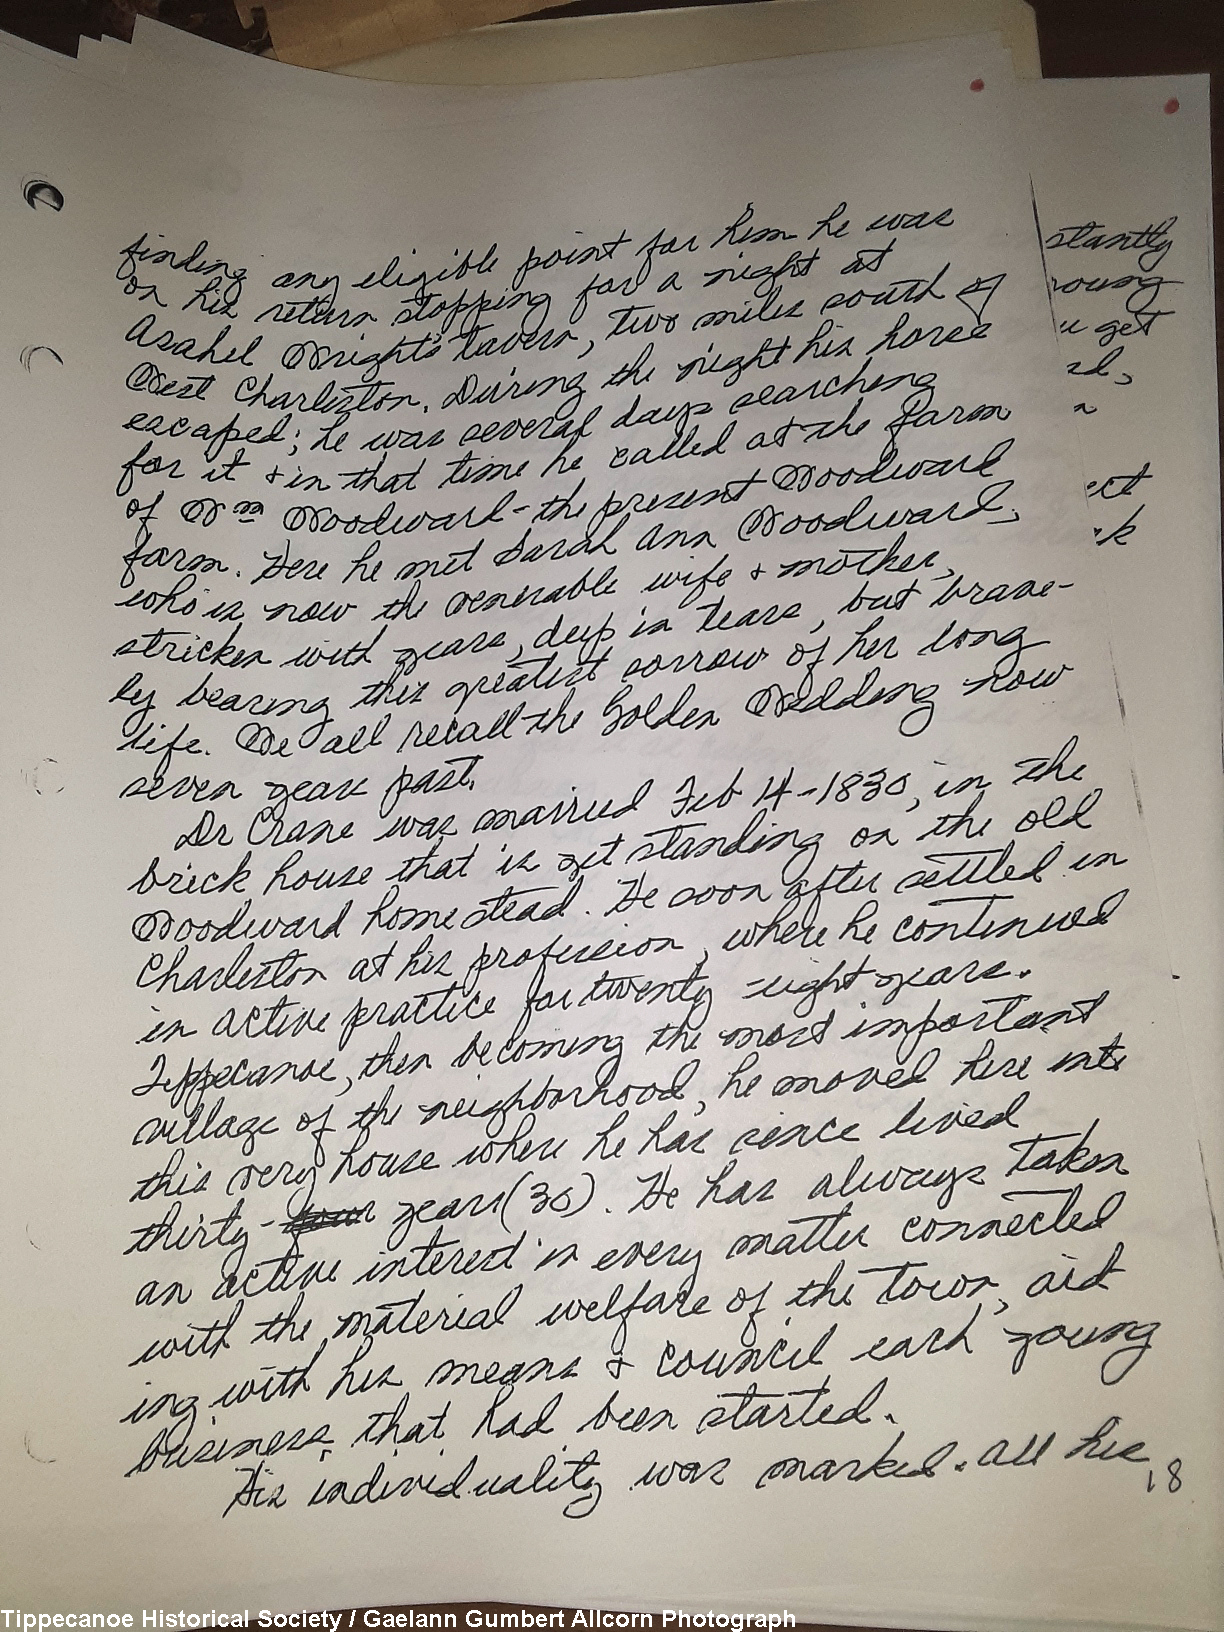 finding any eligible point for him he was
on his return stopping for a night at
Asahel Wright's tavern, two miles south of
West Charleston. During the night his horse
escaped; he was several days searching
for it & in that time he called at the farm
of Wm Woodward - the present Woodward
farm. Here he met Sarah Ann Woodward,
who is now the venerable wife & mother,
stricken with years, deep in tears, but brave-
ly bearing this greatest sorrow of her long
life. We all recall the Golden Wedding now
seven years past.
Dr Crane was married Feb 14 - 1830, in the
brick house that is yet standing on the old
Woodward homestead. He soon after settled in
Charleston at his profession, where he continued
in active practice for twenty-eight years.
Tippecanoe, then becoming the most important
village of the neighborhood, he moved here into
this very house where he has since lived
thirty - years (30). He has always taken
an active interest in every matter connected
with the material welfare of the town, aid
ing with his means & council each young
business, that had been started.
His individuality was marked. All his
18
stantly
young
u get
ect
Tippecanoe Historical Society / Gaelann Gumbert Allcorn Photograph